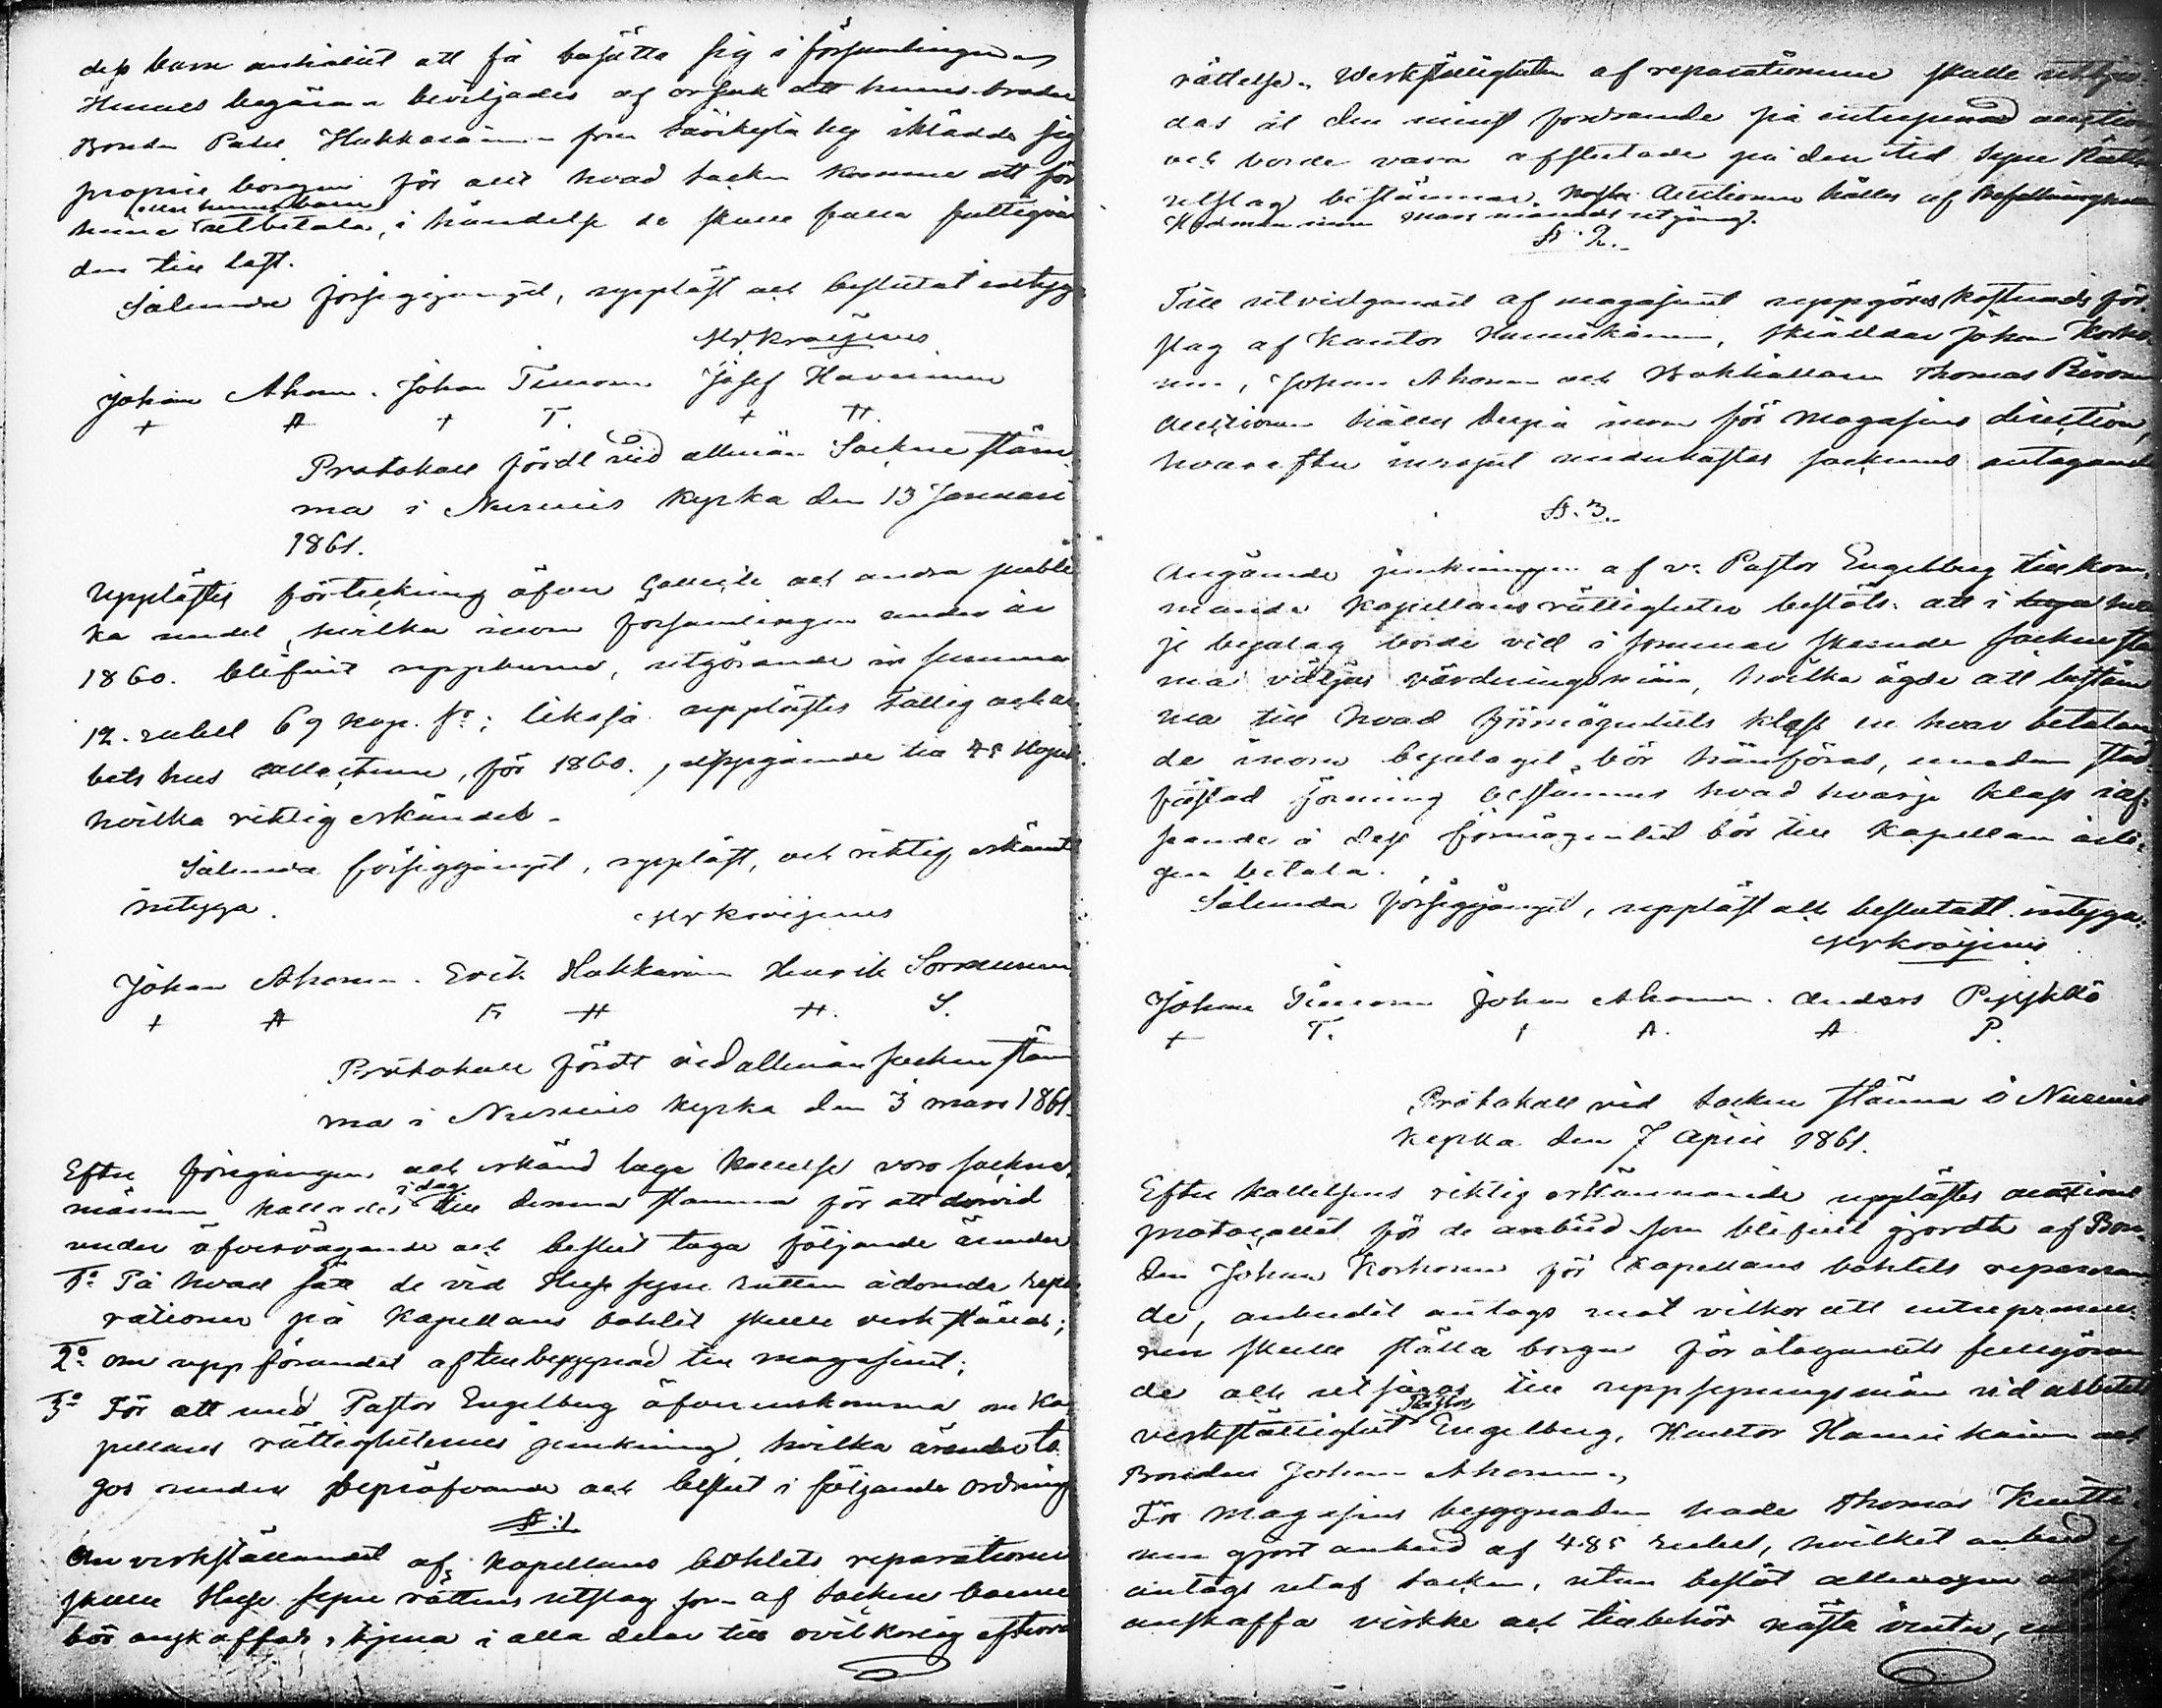 dess barn anhållit att få bosätta sig i församlingen,
Hennes begäran beviljades af orsak att hennes broder
Bonden Påhl Hakkarainen från Säviäkylä by iklädde sig
proprie borgen för allt hvad socken komme att för
eller hennes barn
henne utbetala, i händelse de skulle falla fattigvår
den till last.
Sålunda försiggånget, uppläst och beslutat intyga
Johan Ahonen. Johan Timonen Josef Havuinen
+ A + T. + H.
Protokoll fördt vid allmän Sockne stäm
ma i Nurmis Kyrka den 13 Januari
1861.
Upplästes förteckning öfver Collecte och andra publi
ka medel, hvilka inom församlingen under år
1860. blifvit uppburne, utgörande in summa
12. rubel 69 kop. Sr; likaså upplästes Fattig och ar
bets hus collecterne, för 1860., uppgående till 75 Kopek.
hvilka riktig erkändes.
Sålunda försiggånget, uppläst, och riktig erkändt
intyga.
Johan Ahonen. Erik Hakkarainen Henrik Sormunen
+ A E H H. S.
Protokoll fördt vid allmän socken stäm
ma i Nurmis kyrka den 3 mars 1861.
Efter föregången och erkänd laga kallelse voro sockne
i dag
männen kallades till denna stämma för att dervid
under öfvervägande och beslut taga följande ärender
1o. På hvad sätt de vid Huse syne rätten ådömde repa
rationer på Kapellans bohlet skulle verkställas;
2o. om uppförandet af tillbyggnad till magasinet;
3o För att med Pastor Engelberg öfverenskomma om Ka
pellans rättigheternes jemkning, hvilka ärender to
gos under bepröfvande och beslut i följande ordning
§.1.
Om verkställandet af Kapellans bohlets reparationer
skulle Huse syne rättens utslag som af socknen borde
bör anskaffas, tjena i alla delar till ovilkorlig efter
rättelse. Werkställigheten af reparationerne skulle utbju
das åt den minst fordrande på entreprenad auction
och borde vara afslutade på den tid Syne Rättens
utslag bestämmer. Auctionen hålles af Befallningsman
Hedman inom mars månads utgång.
§. 2.
Till utvidgandet af magasinet uppgöres kostnads för
slag af Kantor Hannikainen, Johan Korho
nen, Johan Ahonen och Thomas Piironen
Auctionen hålles derpå inom för Magasins direction,
hvarefter inropet underkastas socknens antagande
§. 3.
Angående jemkningen af v. Pastor Engelberg tillkom
mande Kapellans rättigheter beslöts: att i hvar
je byalag borde vid i sommar skeende sockne stä
ma väljas värderingsmän, hvilka ägde att bestäm
ma till hvad förmögenhets klass en hvar betalan
de inom byalaget bör hänföras, medan stad
fästad förening bestämmer hvad hvarje klass
seende å dess förmögenhet bör till Kapellan årli
gen betala.
Sålunda försiggånget, uppläst och beslutatt intyga.
Johan Timonen Johan Ahonen. Anders Pyykkö
+ T. + A. A P.
Protokoll vid socken stämma i Nurmis
Kyrka den 7 April 1861.
Efter kallelsens riktig erkännande upplästes auctions
protocollet för de anbud som blifvit gjordt af Bon
den Johan Korhonen för Kapellans bohlets reparan
de, anbudet antogs mot vilkor att entrepreneu
ren skulle ställa borgen för åtagandets fullgöran
de och utsågos till uppsyningsmän vid arbetets
Pastor
verkställighet Engelberg, Kantor Hannikainen och
Bonden Johan Ahonen.
För Magasins byggnaden hade Thomas Kuitti
nen gjort anbud af 485 rubel, hvilket anbud ej
antogs utaf socken, utan beslöt allmogen att
anskaffa virke och tillbehör nästa vinter,